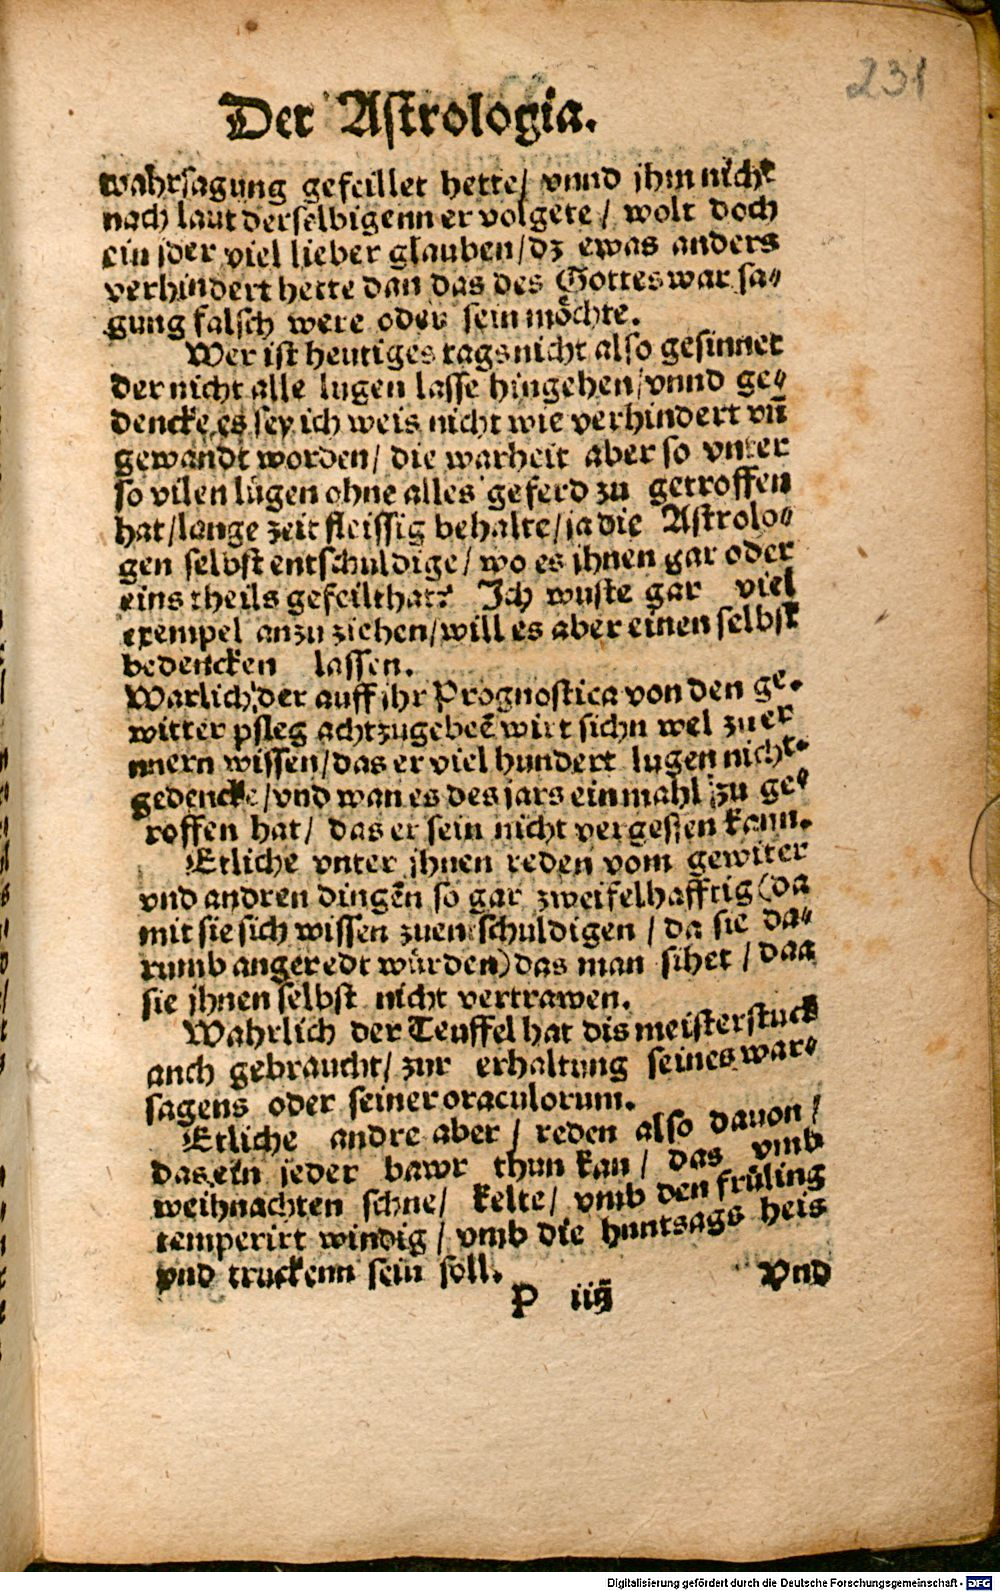 231
Der Astrologia.
wahrsagung gefeillet hette/ vnnd jhm nicht
nach laut derselbigenn er volgete/ wolt doch
ein jder viel lieber glauben/dz ewas anders
verhindert hette dan das des Gottes war sa-
gung falsch were oder sein möchte.
Wer ist heutiges tags nicht also gesinnet
der nicht alle lugen lasse hingehen/vnnd ge-
dencke es sey ich weis nicht wie verhindert vñ
gewandt worden/ die warheit aber so vnter
so vilen lügen ohne alles geferd zu getroffen
hat/lange zeit fleissig behalte/ja die Astrolo-
gen selbst entschuldige/ wo es jhnen gar oder
eins theils gefeilt hat? Ich wuste gar viel
exempel anzu ziehen/will es aber einen selbst
bedencken lassen.
Warlich der auff jhr Prognostica von den ge-
witter pfleg achtzugebeẽ wirt sichn wel zu er
nnern wissen/das er viel hundert lugen nicht-
gedencke/vnd wan es des jars ein mahl zu ge-
roffen hat/ das er sein nicht vergessen kann.
Etliche vnter jhnen reden vom gewiter
vnd andren dingẽn so gar zweifelhafftig (da
mit sie sich wissen zuentschuldigen/ da sie da-
rumb angeredt würden) das man sihet/ daa
sie jhnen selbst nicht vertrawen.
Wahrlich der Teuffel hat dis meisterstuck
auch gebraucht/ zur erhaltung seines war-
sagens oder seiner oraculorum.
Etliche andre aber/ reden also davon/
das ein jeder bawr thun kan/ das vmb
weihnachten schne/ kelte/ vmb den früling
temperirt windig/ vmb die huntsags heis
vnd truckenn sein soll.
P iiij
Vnd
Digitalisierung gefördert durch die Deutsche Forschungsgemeinschaft - DFG